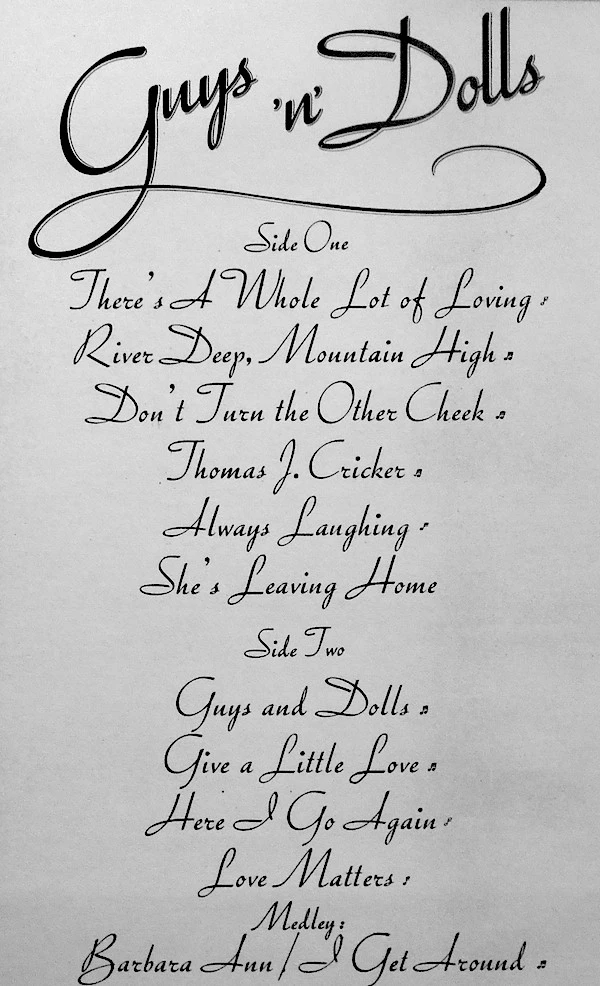 Guys 'n' Dolls
Side One
There's A Whole Lot of Loving
River Deep, Mountain High
Don't Turn the Other Cheek
Thomas J. Cricker
Always Laughing
She's Leaving Home
Side Two
Guys and Dolls
Give a Little Love
Here I Go Again
Love Matters
Medley:
Barbara Ann / I Get Around